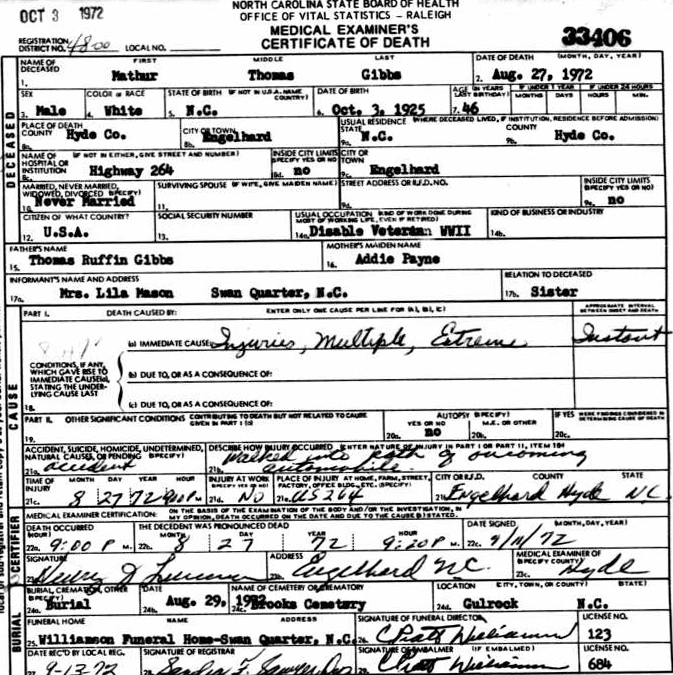 OCT 3 1972
NORTH CAROLINA STATE BOARD OF HEALTH
OFFICE OF VITAL STATISTICS - RALEIGH
MEDICAL EXAMINER'S
CERTIFICATE OF DEATH
33406
REGISTRATION DISTRICT NO. 4800 LOCAL NO.
NAME OF DECEASED FIRST MIDDLE LAST DATE OF DEATH (MONTH, DAY, YEAR)
1. Mathur Thomas Gibbs 2. Aug. 27, 1972
SEX COLOR OR RACE STATE OF BIRTH (IF NOT IN U.S.A. NAME COUNTRY) DATE OF BIRTH AGE (IN YEARS LAST BIRTHDAY) IF UNDER 1 YEAR MONTHS DAYS IF UNDER 24 HOURS HOURS MIN.
3. Male 4. White 5. N.C. 6. Oct. 3, 1925 7. 46
PLACE OF DEATH COUNTY CITY OR TOWN USUAL RESIDENCE (WHERE DECEASED LIVED, IF INSTITUTION, RESIDENCE BEFORE ADMISSION) STATE COUNTY
8a. Hyde Co. 8b. Engelhard 9a. N.C. 9b. Hyde Co.
NAME OF HOSPITAL OR INSTITUTION (IF NOT IN EITHER, GIVE STREET AND NUMBER) INSIDE CITY LIMITS (SPECIFY YES OR NO) CITY OR TOWN
8c. Highway 264 8d. no Engelhard
MARRIED, NEVER MARRIED, WIDOWED, DIVORCED (SPECIFY) SURVIVING SPOUSE (IF WIFE, GIVE MAIDEN NAME) STREET ADDRESS OR R.F.D. NO. INSIDE CITY LIMITS (SPECIFY YES OR NO)
10. Never Married 11. 9d. 9e. no
CITIZEN OF WHAT COUNTRY? SOCIAL SECURITY NUMBER USUAL OCCUPATION (KIND OF WORK DONE DURING MOST OF WORKING LIFE, EVEN IF RETIRED) KIND OF BUSINESS OR INDUSTRY
12. U.S.A. 13. 14a. Disable Veteran WWII 14b.
FATHER'S NAME MOTHER'S MAIDEN NAME
15. Thomas Ruffin Gibbs 16. Addie Payne
INFORMANT'S NAME AND ADDRESS RELATION TO DECEASED
17a. Mrs. Lila Mason Swan Quarter, N.C. 17b. Sister
PART I. DEATH CAUSED BY: ENTER ONLY ONE CAUSE PER LINE FOR (A), (B), (C) APPROXIMATE INTERVAL BETWEEN ONSET AND DEATH
(a) IMMEDIATE CAUSE Injuries, Multiple, Extreme Instant
CONDITIONS, IF ANY, WHICH GAVE RISE TO IMMEDIATE CAUSE(a), STATING THE UNDERLYING CAUSE LAST
(b) DUE TO, OR AS A CONSEQUENCE OF:
18. (c) DUE TO, OR AS A CONSEQUENCE OF:
PART II. OTHER SIGNIFICANT CONDITIONS CONTRIBUTING TO DEATH BUT NOT RELATED TO CAUSE GIVEN IN PART I (a) AUTOPSY (SPECIFY) YES OR NO M.E. OR OTHER IF YES WERE FINDINGS CONSIDERED IN DETERMINING CAUSE OF DEATH
19. 20a. no 20b. 20c.
ACCIDENT, SUICIDE, HOMICIDE, UNDETERMINED, NATURAL CAUSES, OR PENDING (SPECIFY) DESCRIBE HOW INJURY OCCURRED (ENTER NATURE OF INJURY IN PART I OR PART II, ITEM 18)
21a. accident 21b. Walked into path of oncoming automobile.
TIME OF INJURY MONTH DAY YEAR HOUR INJURY AT WORK (SPECIFY YES OR NO) PLACE OF INJURY AT HOME, FARM, STREET, FACTORY, OFFICE BLDG., ETC. (SPECIFY) CITY OR R.F.D. COUNTY STATE
21c. 8 27 72 9:00 P M. 21d. NO 21e. US 264 21f. Engelhard Hyde NC
MEDICAL EXAMINER CERTIFICATION: ON THE BASIS OF THE EXAMINATION OF THE BODY AND/OR THE INVESTIGATION, IN MY OPINION, DEATH OCCURRED ON THE DATE AND DUE TO THE CAUSE(S) STATED.
DEATH OCCURRED (HOUR) THE DECEDENT WAS PRONOUNCED DEAD MONTH DAY YEAR HOUR DATE SIGNED (MONTH, DAY, YEAR)
22a. 9:00 P M. 22b. 8 27 72 9:20 P M. 22c. 9/11/72
SIGNATURE ADDRESS MEDICAL EXAMINER OF (SPECIFY COUNTY)
Engelhard N.C. Hyde
BURIAL, CREMATION, OTHER (SPECIFY) DATE NAME OF CEMETERY OR CREMATORY LOCATION (CITY, TOWN, OR COUNTY) (STATE)
24a. Burial 24b. Aug. 29, 1972 Brooks Cemetery 24d. Gulrock N.C.
FUNERAL HOME NAME ADDRESS SIGNATURE OF FUNERAL DIRECTOR LICENSE NO.
25. Williamson Funeral Home-Swan Quarter, N.C. 123
DATE REC'D BY LOCAL REG. SIGNATURE OF REGISTRAR SIGNATURE OF EMBALMER (IF EMBALMED) LICENSE NO.
27. 9-13-72 684
DECEASED
CAUSE
CERTIFIER
BURIAL